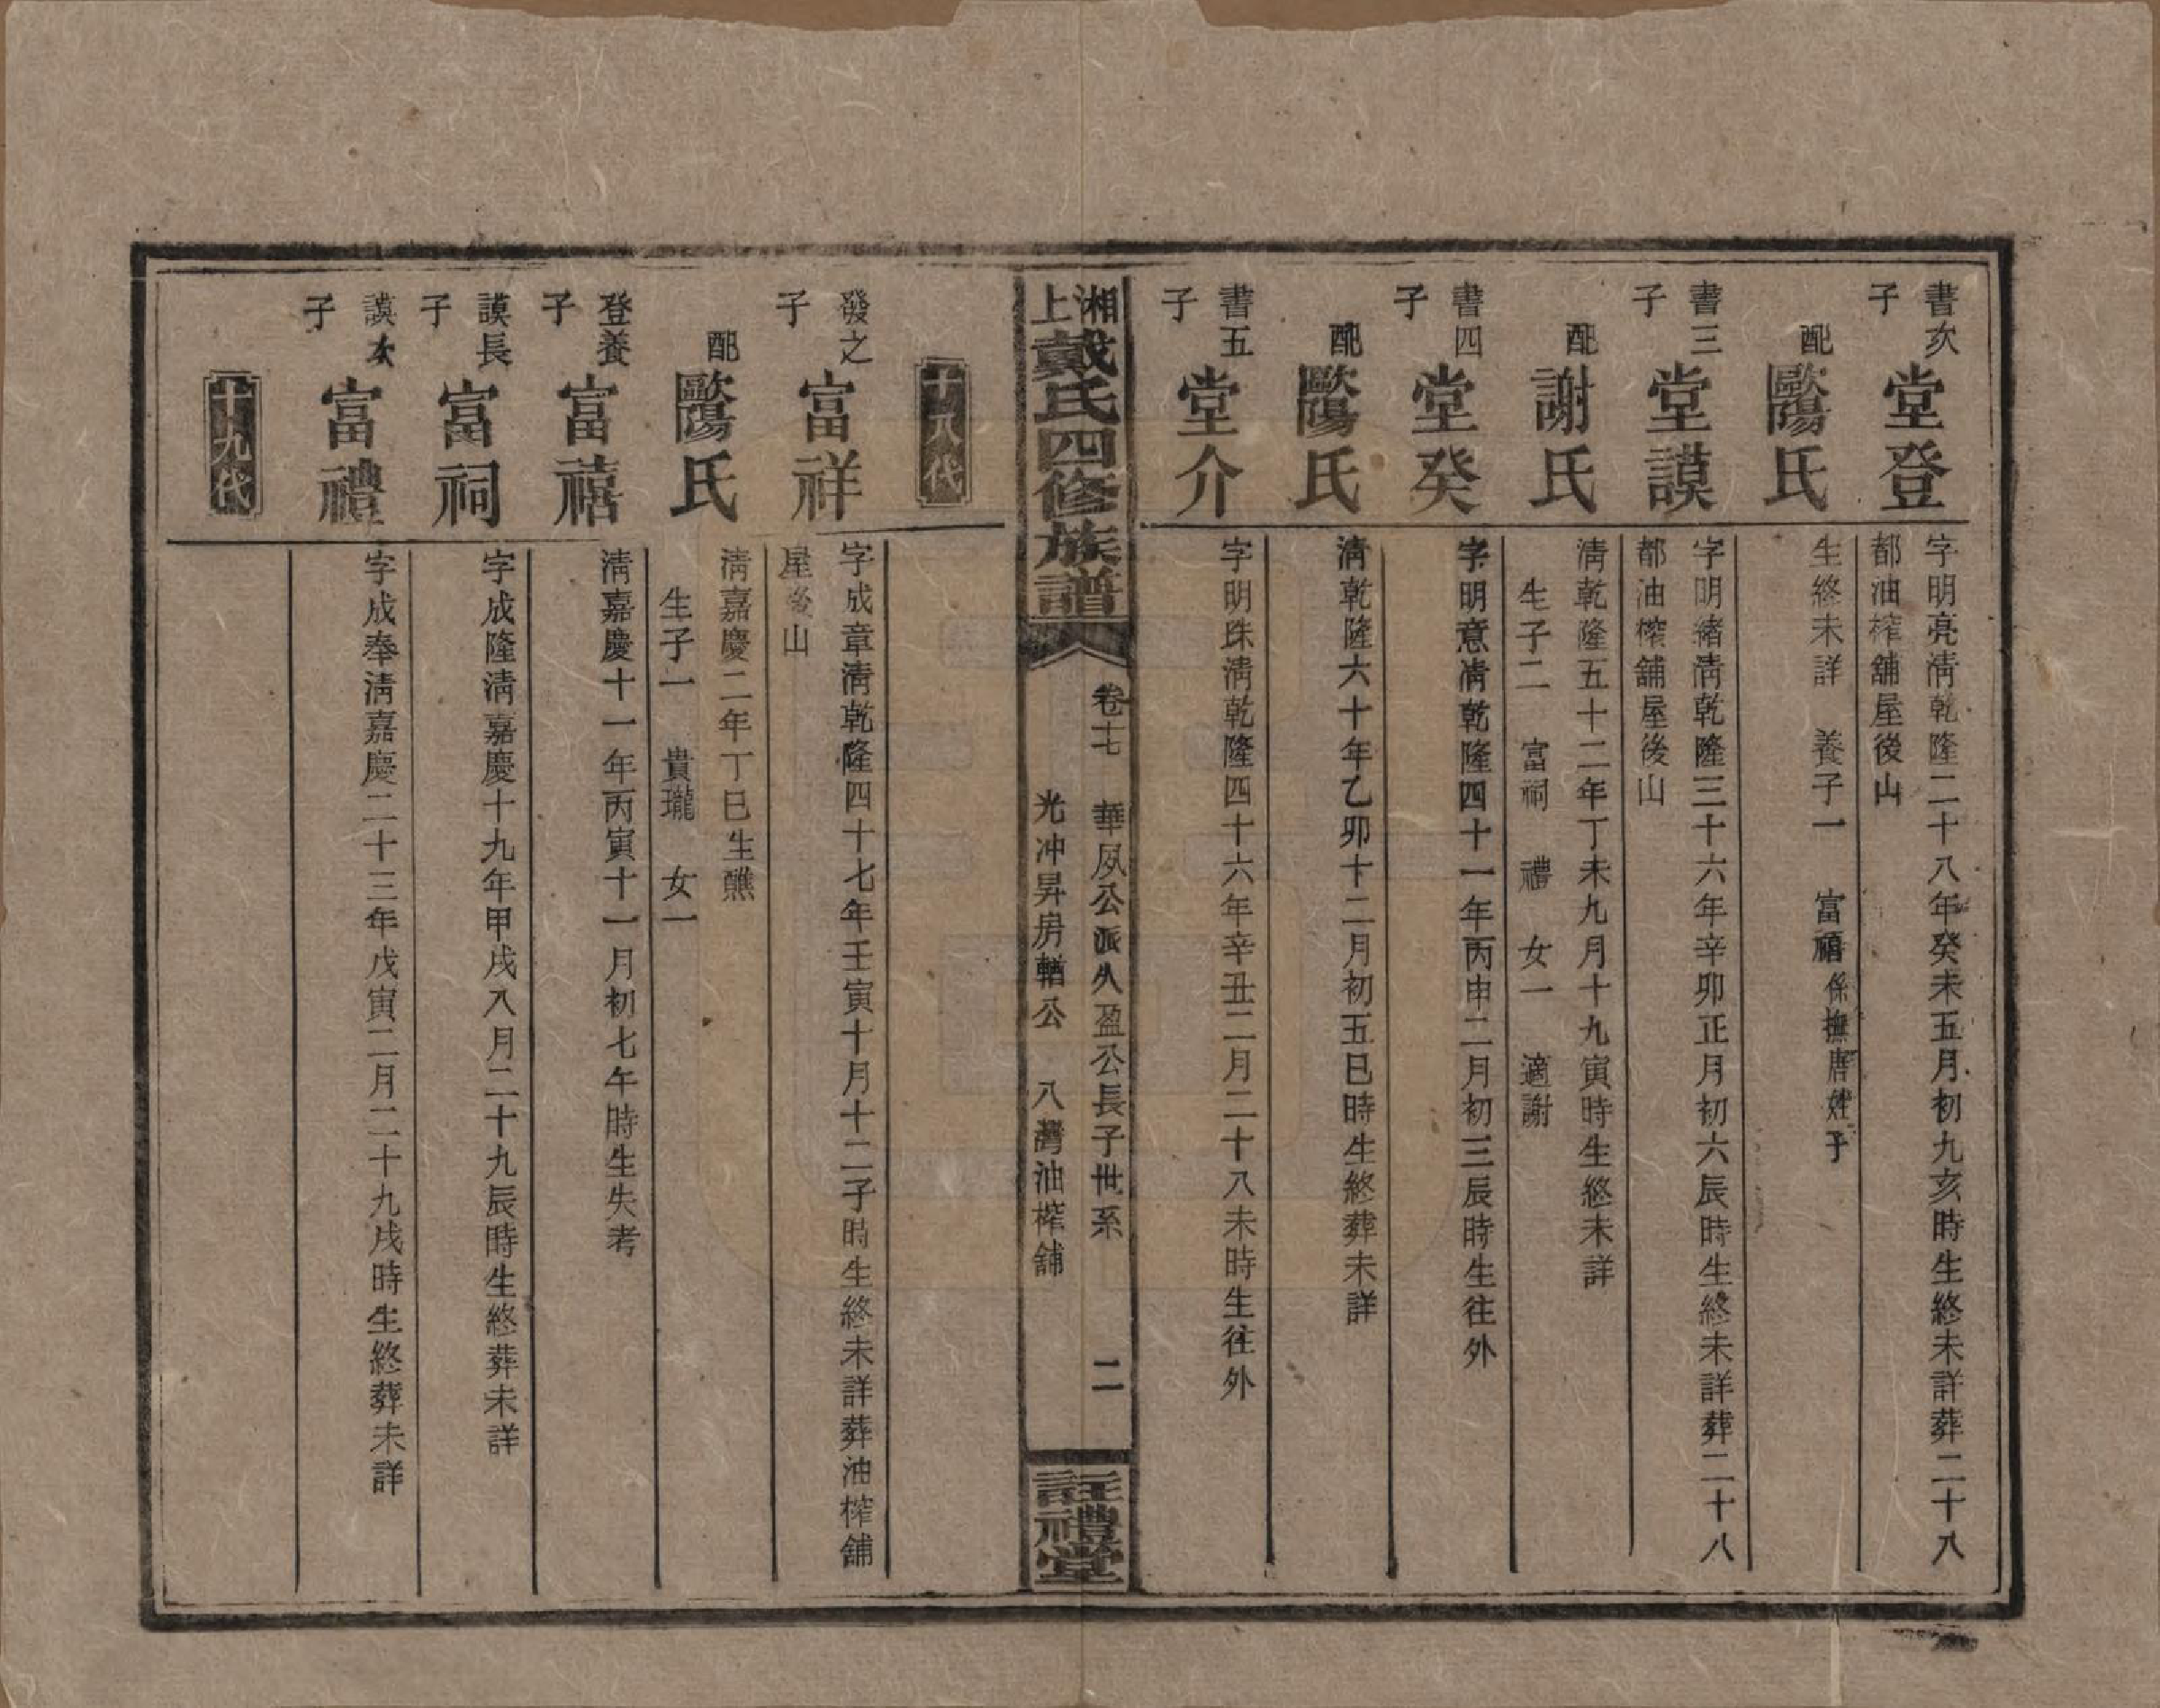 書次子
堂登
字明亮淸乾隆二十八年癸未五月初九亥時生終未詳葬二十八
都油榨舖屋後山
配
歐陽氏
生終未詳　養子一　富禧係撫唐姓子
書三子
堂謨
字明緒淸乾隆三十六年辛卯正月初六辰時生終未詳葬二十八
都油榨舖屋後山
配
謝氏
淸乾隆五十二年丁未九月十九寅時生終未詳
生子二　富祠　禮　女一　適謝
書四子
堂癸
字明意淸乾隆四十一年丙申二月初三辰時生往外
配
歐陽氏
淸乾隆六十年乙卯十二月初五巳時生終葬未詳
書五子
堂介
字明珠淸乾隆四十六年辛丑二月二十八未時生往外
湘上戴氏四修族譜
卷十七　華夙公派久盈公長子世系　二
光冲昇房輶公　八灣油榨舖
註禮堂
十八代
發之子
富祥
字成章淸乾隆四十七年壬寅十月十二子時生終未詳葬油榨舖
屋後山
配
歐陽氏
淸嘉慶二年丁巳生醮
生子一　貴瓏　女一
登養子
富禧
淸嘉慶十一年丙寅十一月初七午時生失考
謨長子
富祠
字成隆淸嘉慶十九年甲戌八月二十九辰時生終葬未詳
謨次子
富禮
字成奉淸嘉慶二十三年戊寅二月二十九戌時生終葬未詳
十九代